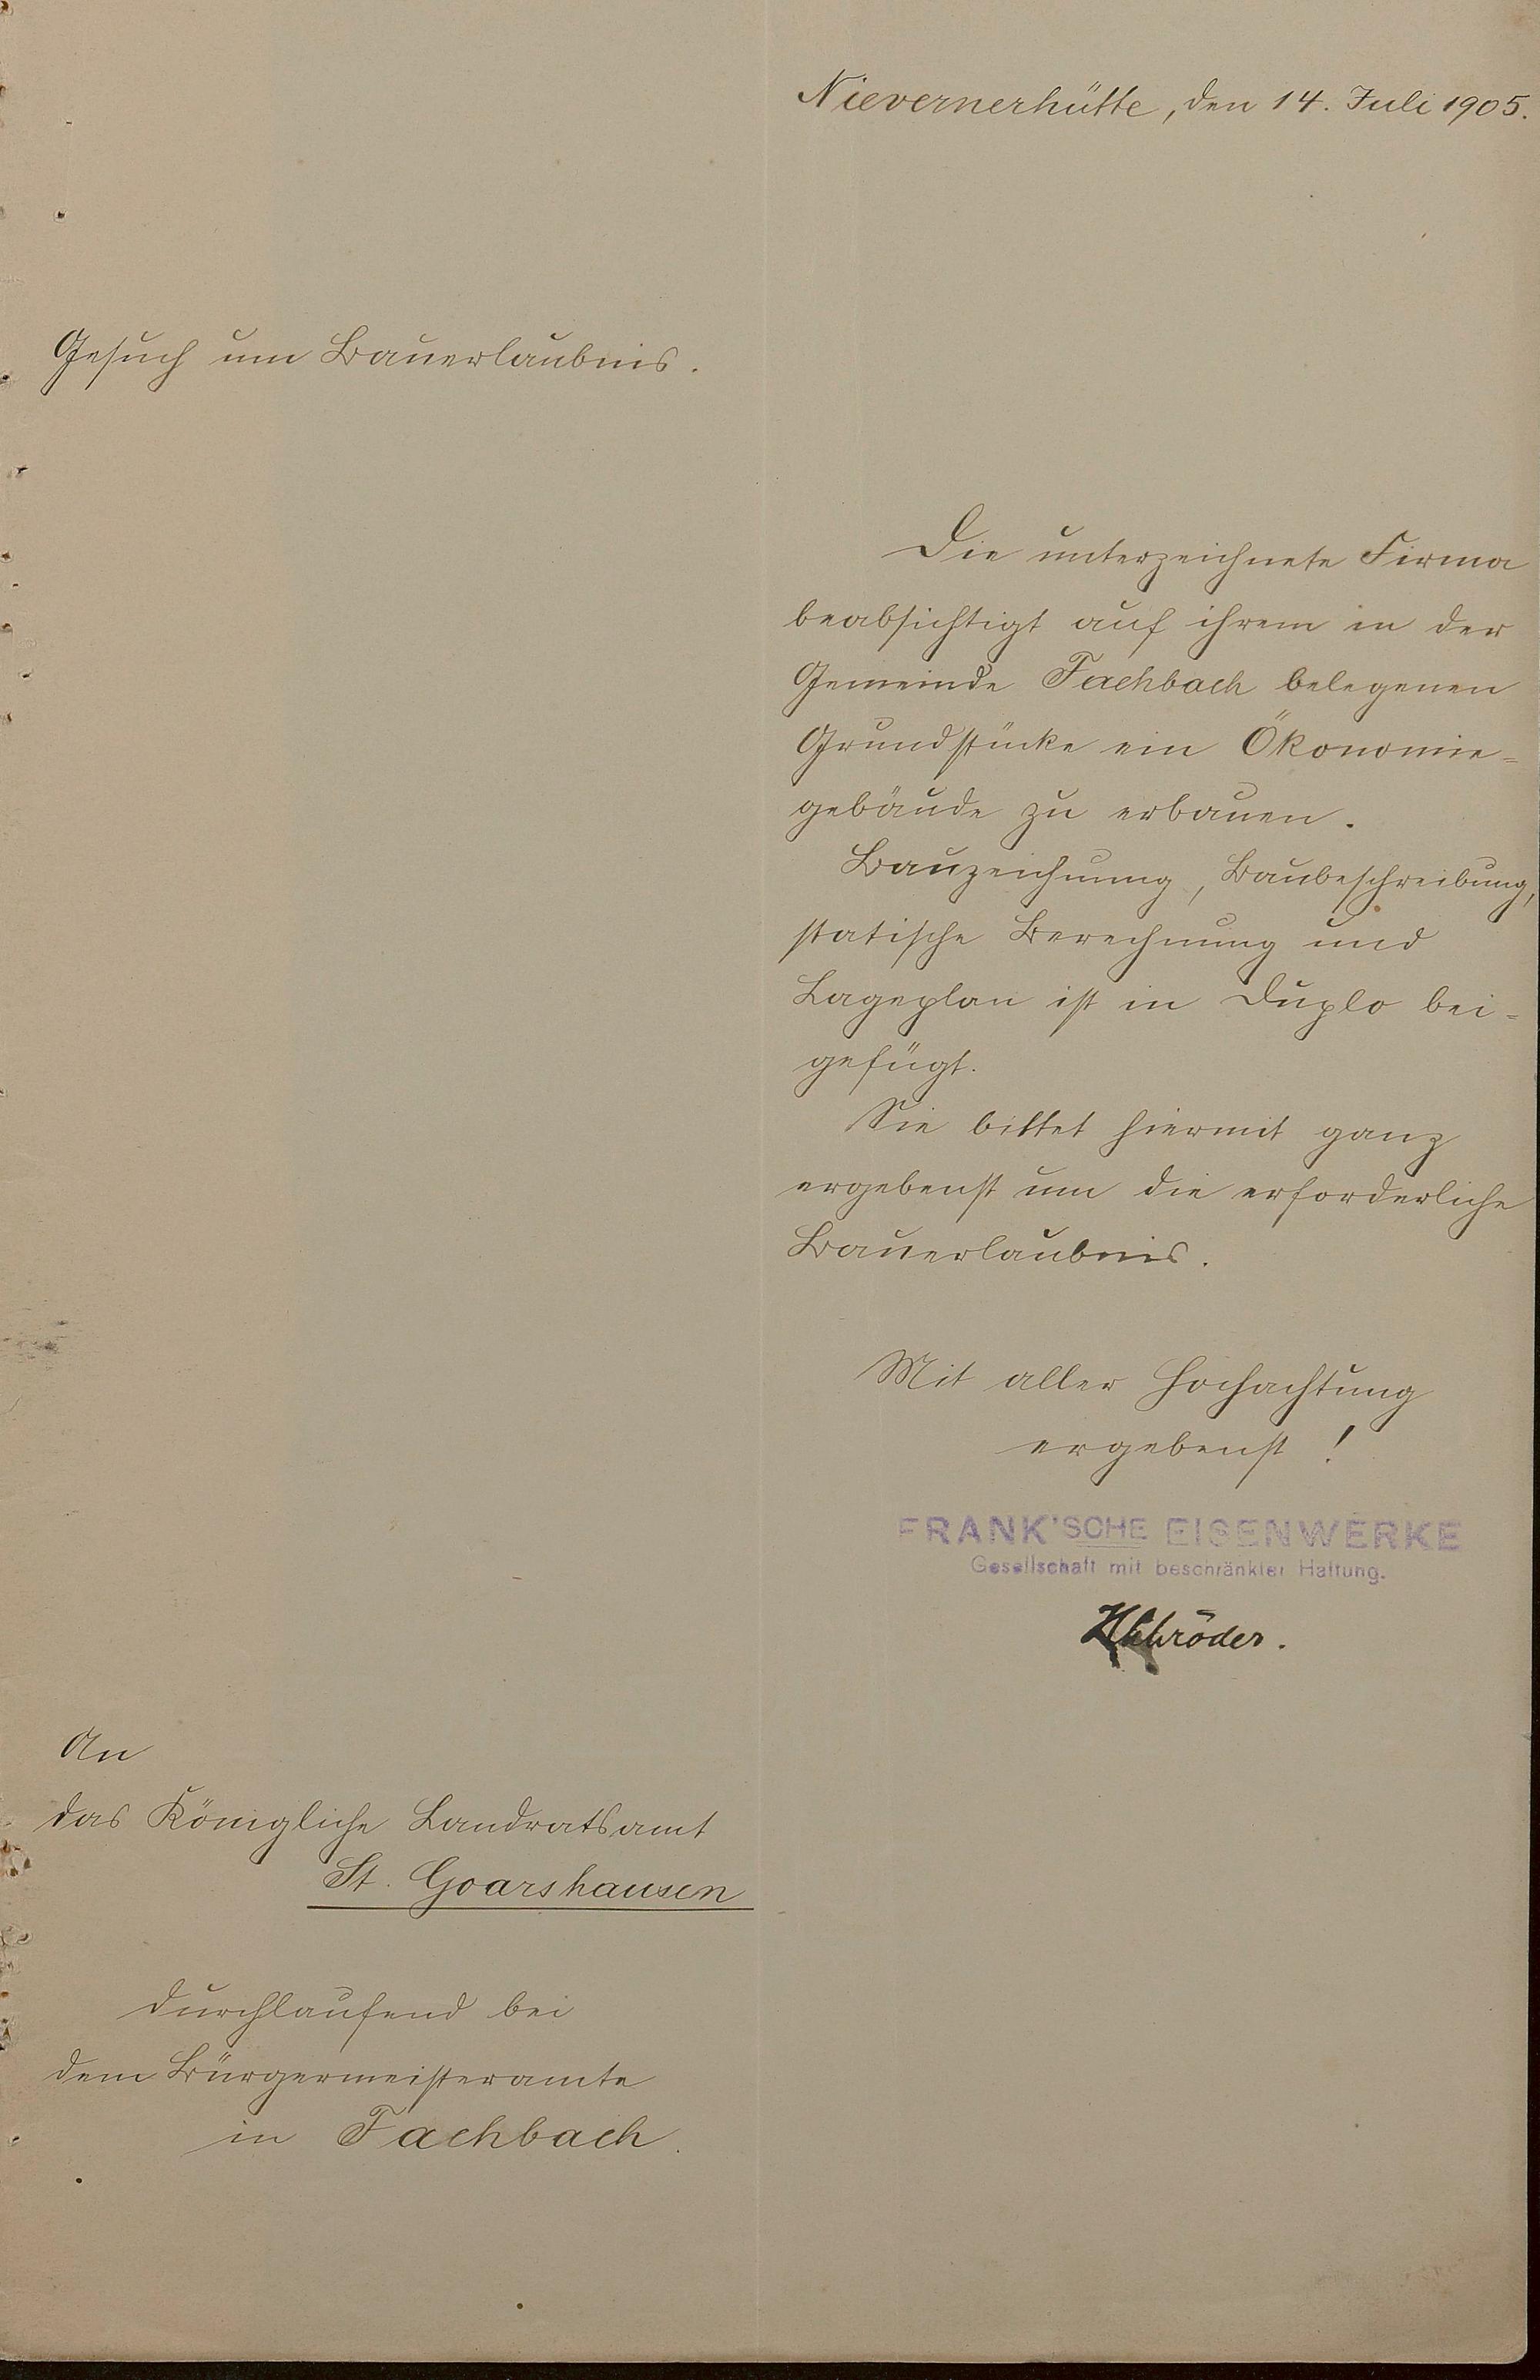 Nievernerhütte, den 14. Juli 1905.
Gesuch um Bauerlaubnis.
Die unterzeichnete Firma
beabsichtigt auf ihrem in der
Gemeinde Fachbach belegenen
Grundstücke ein Ökonomie=
gebäude zu erbauen.
Bauzeichnung, Baubeschreibung,
statische Berechnung und
Lageplan ist in Duplo bei=
gefügt.
Sie bittet hiermit ganz
ergebenst um die erforderliche
Bauerlaubnis.
Mit aller Hochachtung
ergebenst!
FRANK'SCHE EISENWERKE
Gesellschaft mit beschränkter Haftung.
Schröder.
An
das Königliche Landratsamt
St. Goarshausen
durchlaufend bei
dem Bürgermeisteramte
in Fachbach.